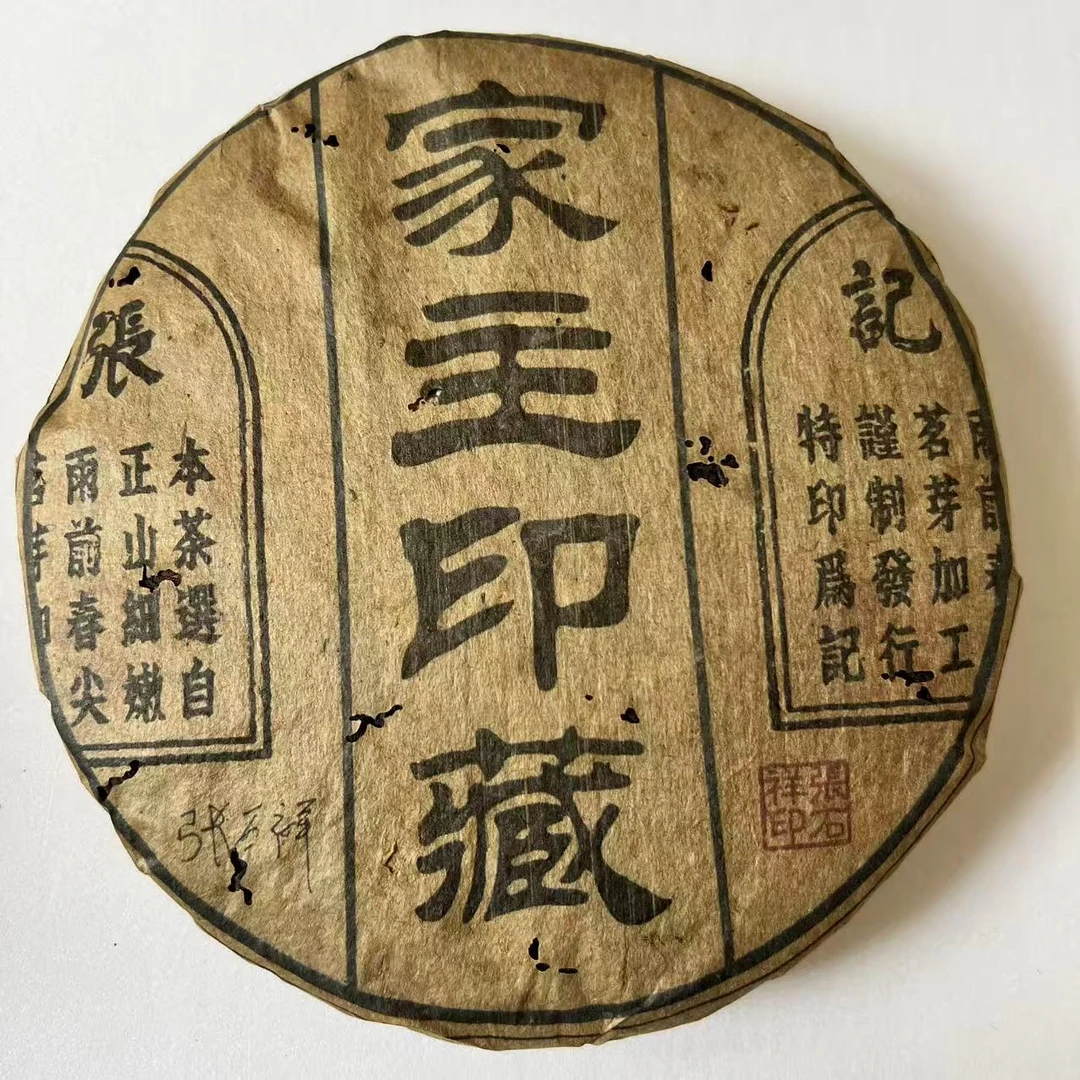 家主印藏
張
本茶選自
正山細嫩
雨前春尖
記
茗芽加工
謹制發行
特印爲記
张石祥
張石
祥印